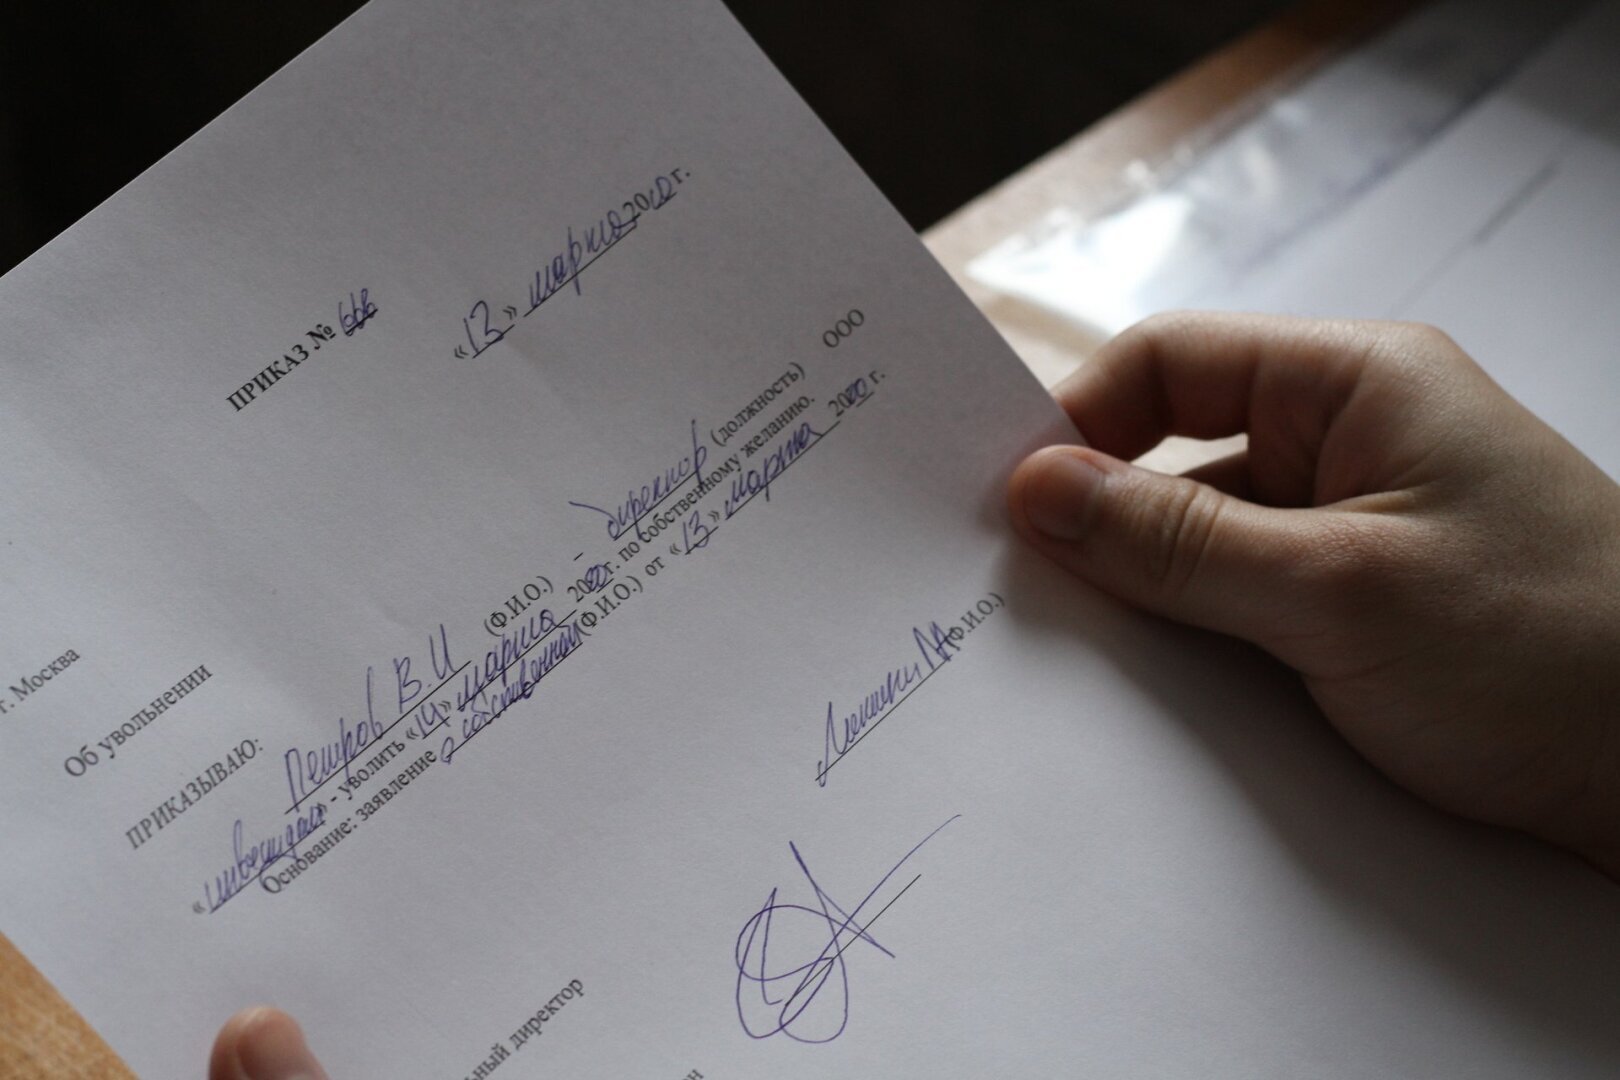 ПРИКАЗ № 666
«13» марта 2020 г.
г. Москва
Об увольнении
ПРИКАЗЫВАЮ:
Петров В.И (Ф.И.О.) - директор (должность) ООО
«инвестидам» - уволить «14» марта 2020 г. по собственному желанию.
Основание: заявление о собственной (Ф.И.О.) от «13» марта 2020 г.
(Ф.И.О.)
ьный директор